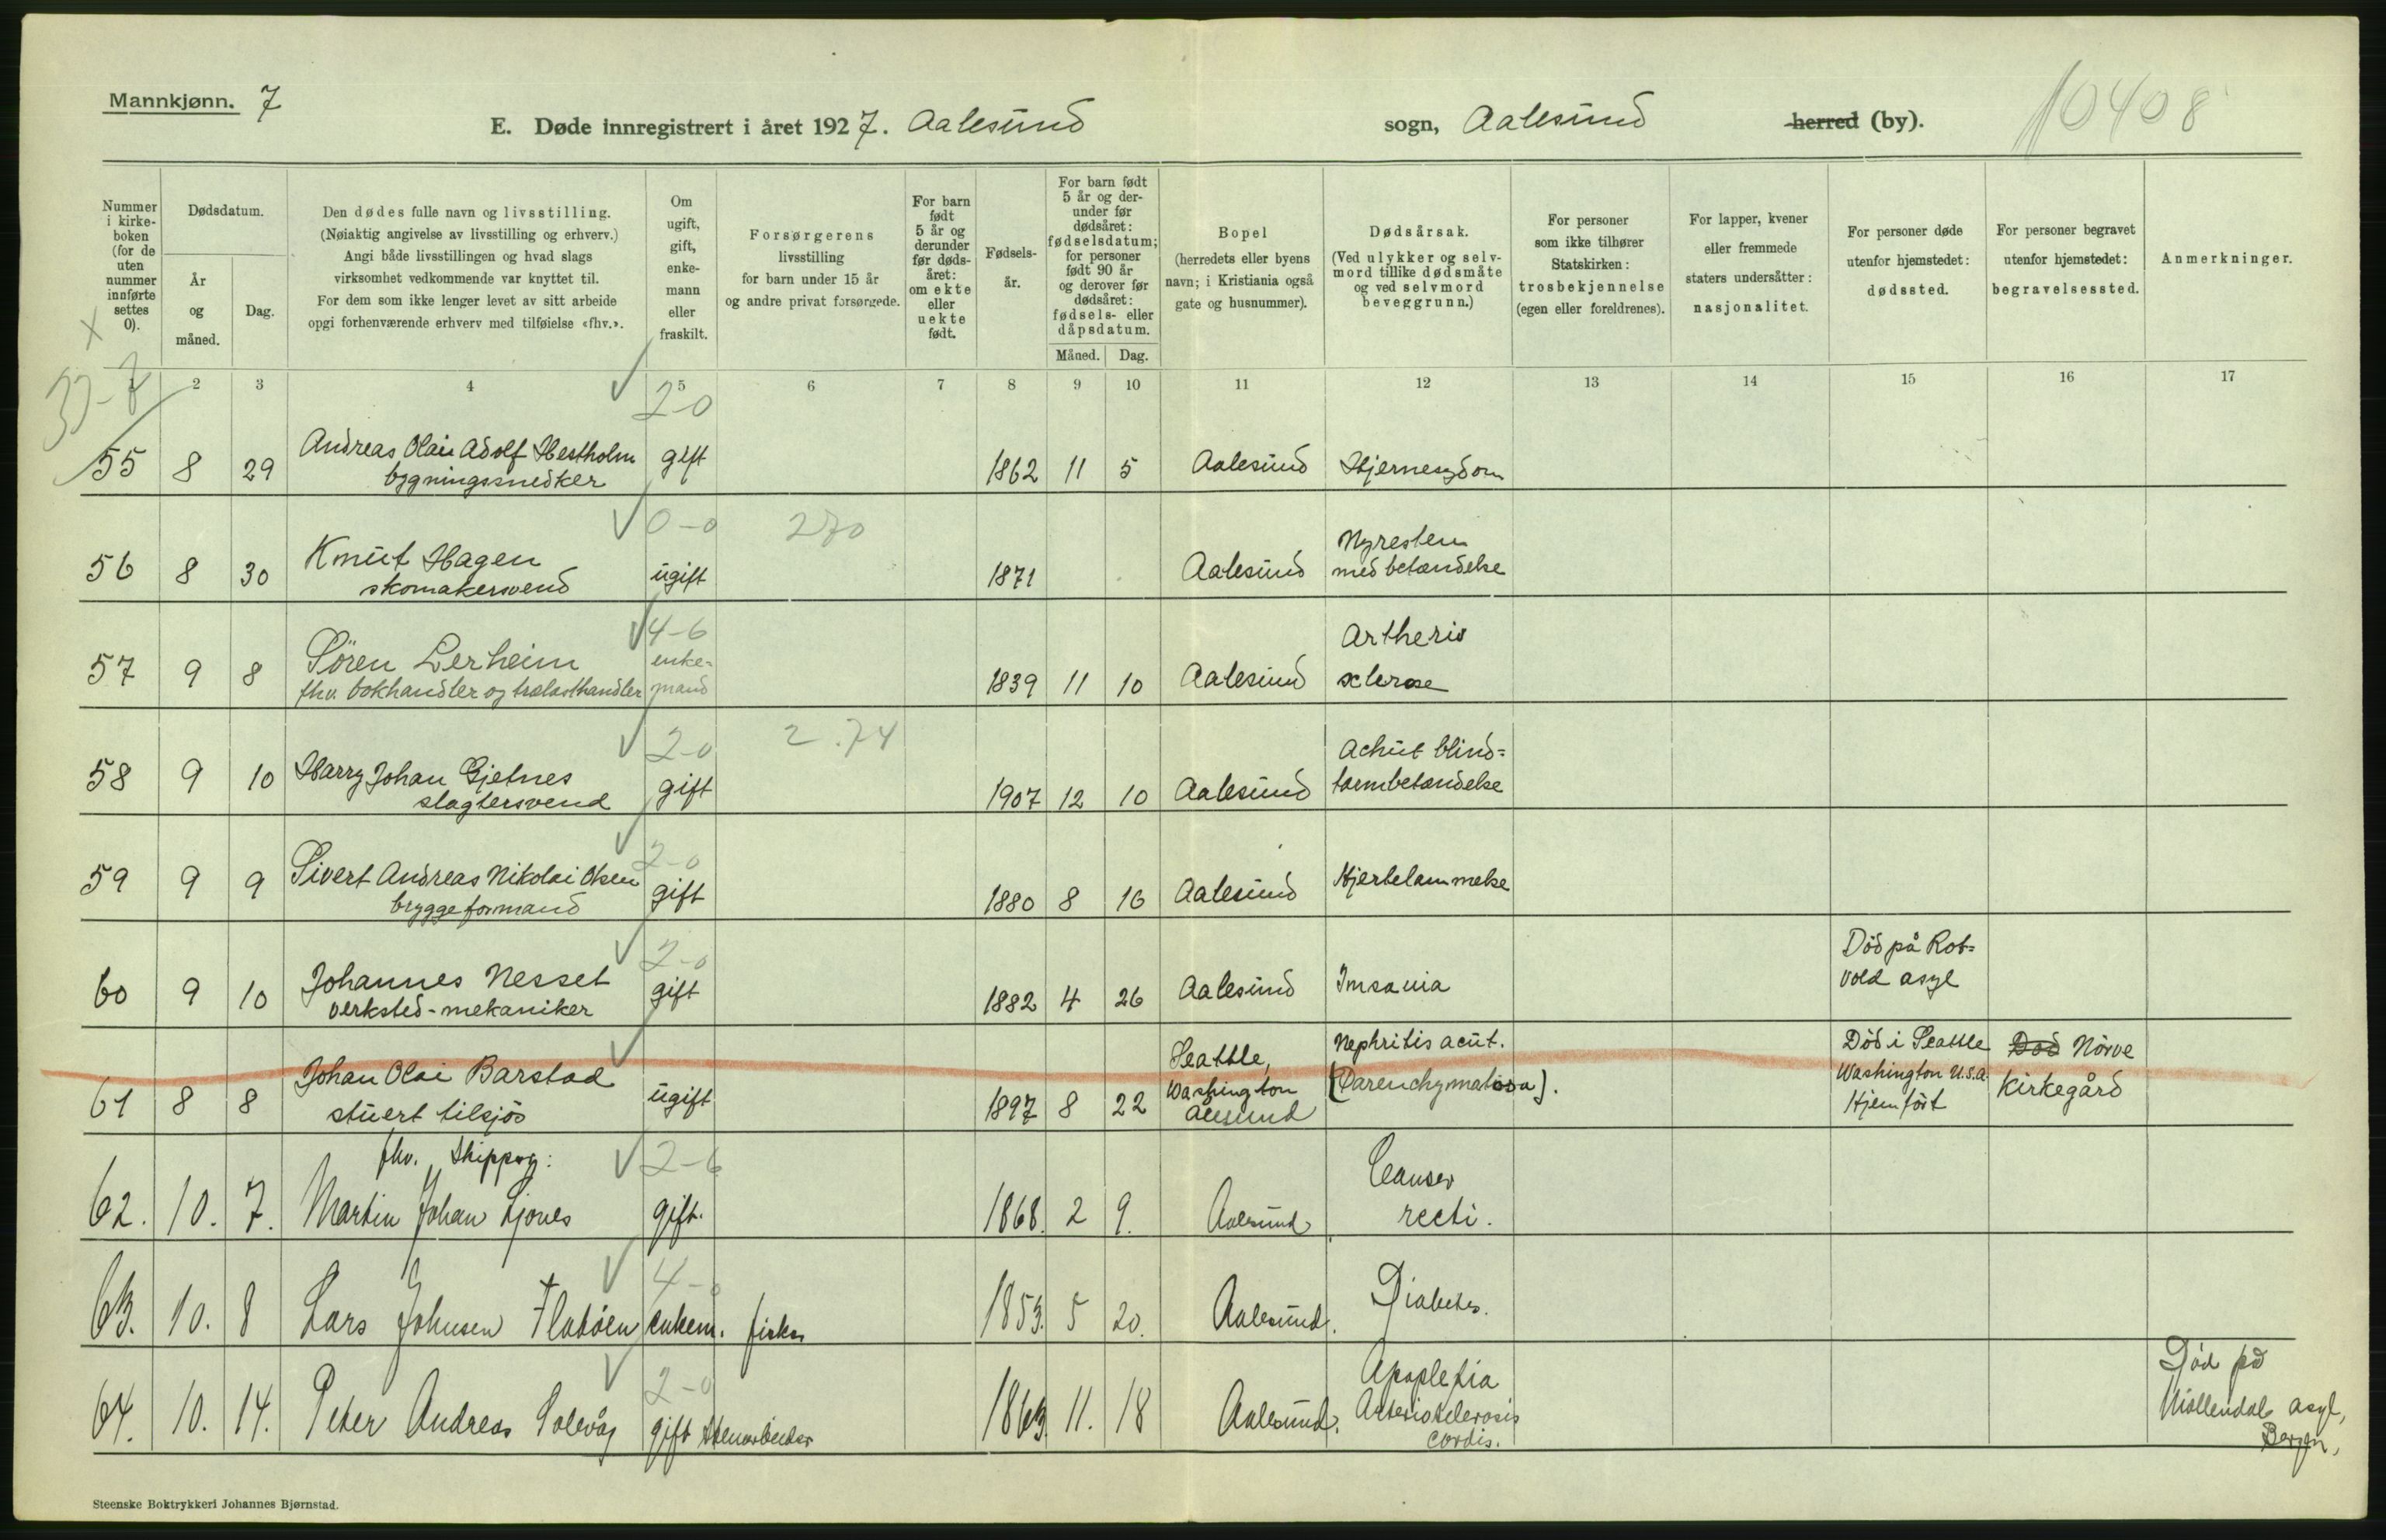 Mannkjønn. 7
E. Døde innregistrert i året 1927. Aalesund sogn, Aalesund herred (by).
10408
Nummer i kirke- boken (for de uten nummer innførte settes 0).
Dødsdatum.
År og måned.
Dag.
Den dødes fulle navn og livsstilling.
(Nøiaktig angivelse av livsstilling og erhverv.)
Angi både livsstillingen og hvad slags
virksomhet vedkommende var knyttet til.
For dem som ikke lenger levet av sitt arbeide
opgi forhenværende erhverv med tilføielse «fhv.».
Om ugift, gift, enke- mann eller fraskilt.
Forsørgerens
livsstilling
for barn under 15 år
og andre privat forsørgede.
For barn født 5 år og derunder før døds- året: om ekte eller uekte født.
Fødsels- år.
For barn født 5 år og der- under før dødsåret: fødselsdatum; for personer født 90 år og derover før dødsåret: fødsels- eller dåpsdatum.
Måned. Dag.
Bopel
(herredets eller byens
navn; i Kristiania også
gate og husnummer).
Dødsårsak.
(Ved ulykker og selv-
mord tillike dødsmåte
og ved selvmord
beveggrunn.)
For personer
som ikke tilhører
Statskirken:
trosbekjennelse
(egen eller foreldrenes).
For lapper, kvener
eller fremmede
staters undersåtter:
nasjonalitet.
For personer døde
utenfor hjemstedet:
dødssted.
For personer begravet
utenfor hjemstedet:
begravelsessted.
Anmerkninger.
1 2 3 4 5 6 7 8 9 10 11 12 13 14 15 16 17
2-0
55 8 29 Andreas Olai Adolf Hestholm gift 1862 11 5 Aalesund Hjernesydom
bygningssnedker
0-0 270
56 8 30 Knut Hagen ugift 1871 Aalesund Nyresten
skomakersvend med betændelse
4-6
57 9 8 Sören Lerheim enke- 1839 11 10 Aalesund Artherio
fhv. bokhandler og trælasthandler mand sclerose
2-0 2.74
58 9 10 Harry Johan Gjetnes gift 1907 12 10 Aalesund Achut blind-
slagtersvend tarmbetændelse
2-0
59 9 9 Sivert Andreas Nikolai Olsen gift 1880 8 16 Aalesund Hjertelammelse
bryggeformand
2-0
60 9 10 Johannes Nesset gift 1882 4 26 Aalesund Insania Död på Rot-
verksted-mekaniker vold asyl
61 8 8 Johan Olai Barstad ugift 1897 8 22 Seattle, Nephritis acut. Död i Seattle Död Nörve
stuert tilsjös Washington (Parenchymatosa). Washington U.S.A. Kirkegård
Ålesund Hjemført
fhv. Skipper: 2-6
62. 10. 7. Martin Johan Liones gift. 1868. 2 9. Aalesund Canser
recti.
4-0
63. 10. 8 Lars Johnsen Flatöen enkem. fisker 1853. 5 20. Aalesund. Diabetes.
2-0
64. 10. 14. Peter Andreas Solevåg gift Stenarbeider 1863. 11. 18 Aalesund. Apoplexia Död på
Arteriosclerosis Möllendal asyl,
cordis. Bergen.
Steenske Boktrykkeri Johannes Bjørnstad.